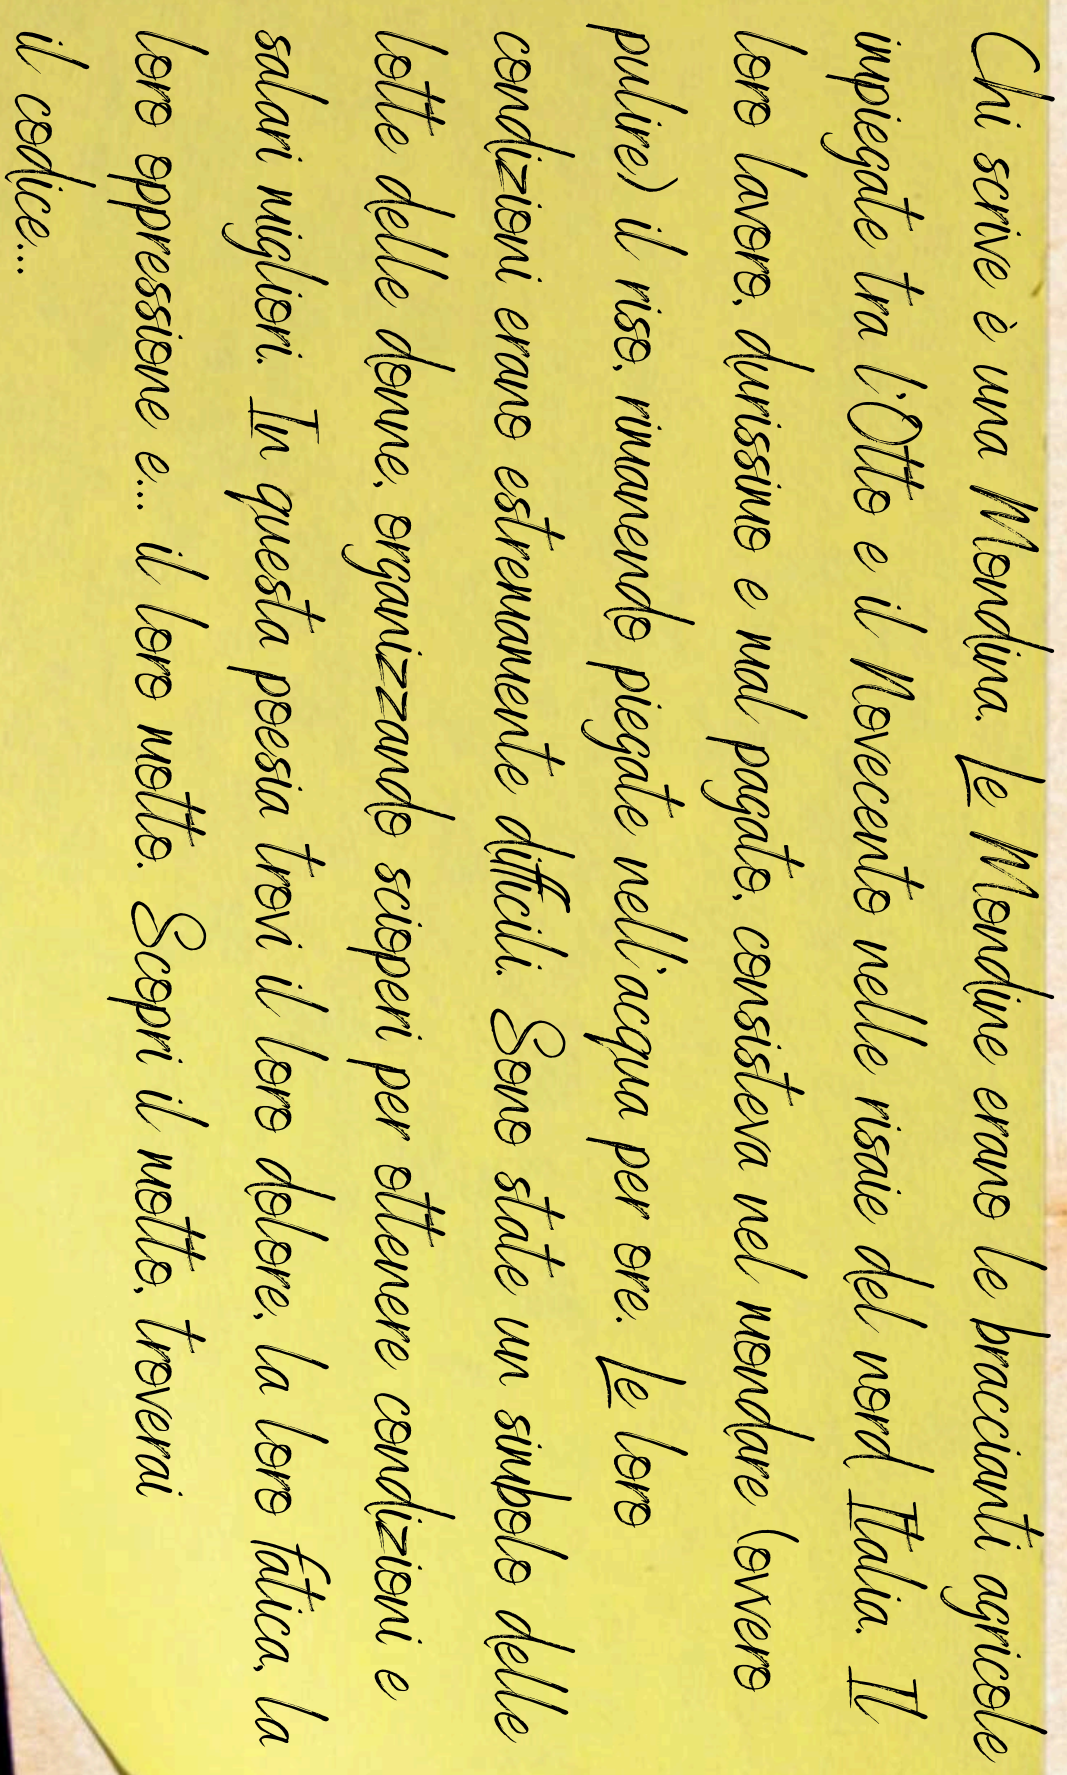 Chi scrive è una Mondina. Le Mondine erano le braccianti agricole
impiegate tra l'Otto e il Novecento nelle risaie del nord Italia. Il
loro lavoro, durissimo e mal pagato, consisteva nel mondare (ovvero
pulire) il riso, rimanendo piegate nell'acqua per ore. Le loro
condizioni erano estremamente difficili. Sono state un simbolo delle
lotte delle donne, organizzando scioperi per ottenere condizioni e
salari migliori. In questa poesia trovi il loro dolore, la loro fatica, la
loro oppressione e... il loro motto. Scopri il motto, troverai
il codice...